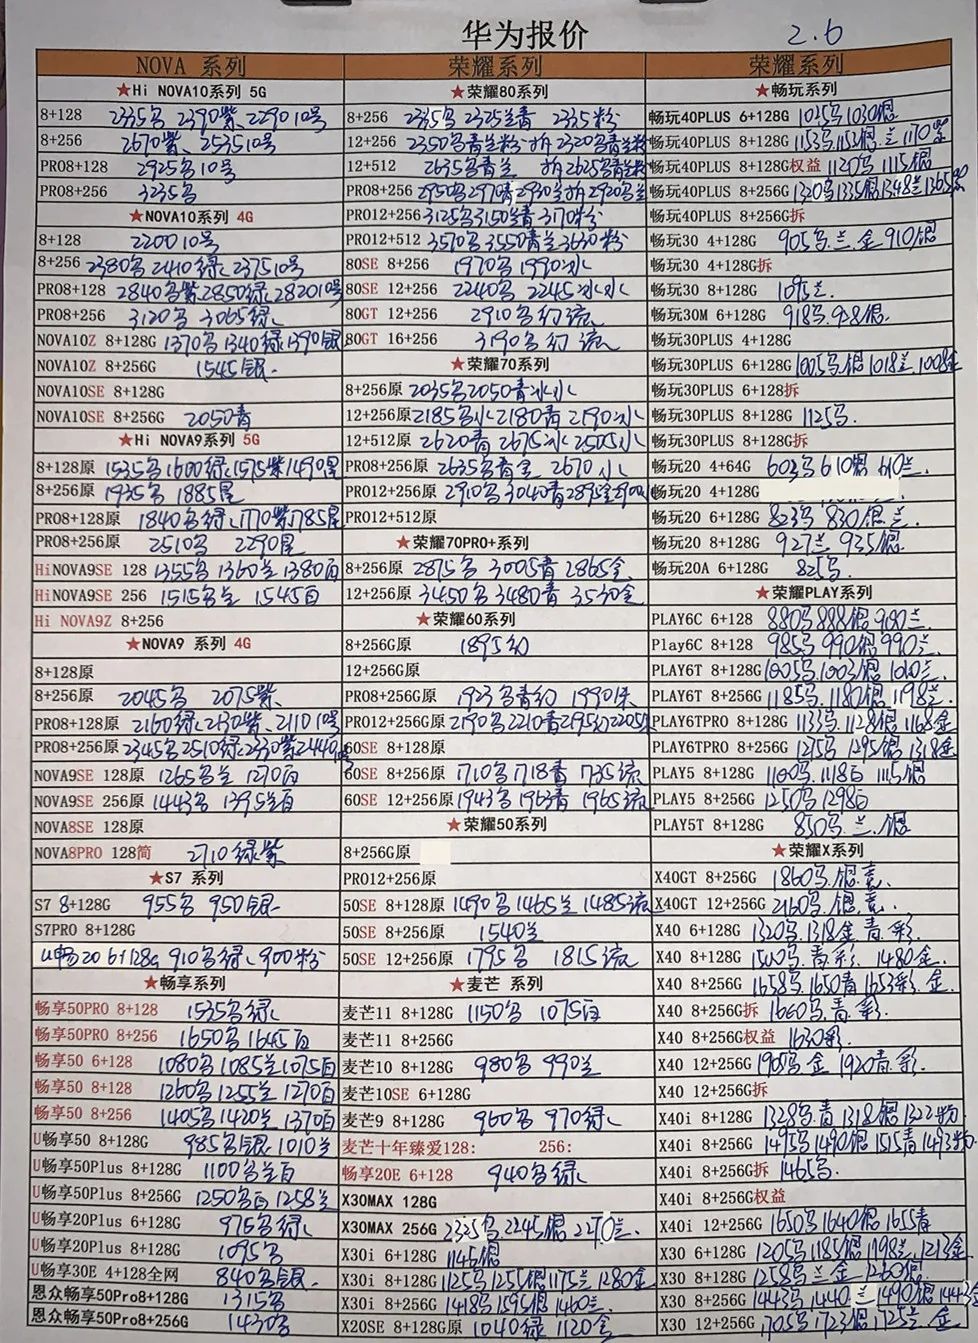 华为报价 2.6
NOVA 系列
★Hi NOVA10系列 5G
8+128 2335鸟 2390紫 2290 10号
8+256 2670紫 2535 10号
PRO8+128 2925鸟 10号
PRO8+256 3235鸟
★NOVA10系列 4G
8+128 2200 10号
8+256 2380鸟 2410绿 2375 10号
PRO8+128 2840鸟紫 2850绿 2820 10号
PRO8+256 3120鸟 3065绿
NOVA10Z 8+128G 1370鸟 1340绿 1390银
NOVA10Z 8+256G 1545银
NOVA10SE 8+128G
NOVA10SE 8+256G 2050青
★Hi NOVA9系列 5G
8+128原 1535鸟 1600绿 1575紫 1490星
8+256原 1935鸟 1885星
PRO8+128原 1840鸟绿 1770紫 1785星
PRO8+256原 2510鸟 2290星
HiNOVA9SE 128 1355鸟 1360兰 1380百
HiNOVA9SE 256 1515鸟兰 1545百
Hi NOVA9Z 8+256
★NOVA9 系列 4G
8+128原
8+256原 2045鸟 2075紫
PRO8+128原 2160绿 2130紫 2110 10号
PRO8+256原 2345鸟 2510绿 2330紫 2440
NOVA9SE 128原 1265鸟兰 1270百
NOVA9SE 256原 1443鸟 1395兰百
NOVA8SE 128原
NOVA8PRO 128简 2710绿紫
★S7 系列
S7 8+128G 955鸟 950银
S7PRO 8+128G
U畅20 6+128G 910鸟绿 900粉
★畅享系列
畅享50PRO 8+128 1535鸟绿
畅享50PRO 8+256 1650鸟 1645百
畅享50 6+128 1080鸟 1085兰 1075百
畅享50 8+128 1260鸟 1255兰 1270百
畅享50 8+256 1405鸟 1420兰 1370百
U畅享50 8+128G 985鸟银 1010兰
U畅享50Plus 8+128G 1100鸟兰百
U畅享50Plus 8+256G 1250鸟百 1258兰
U畅享20Plus 6+128G 975鸟绿
U畅享20Plus 8+128G 1095鸟
U畅享30E 4+128全网 840鸟银
恩众畅享50Pro8+128G 1315鸟
恩众畅享50Pro8+256G 1430鸟
荣耀系列
★荣耀80系列
8+256 2335鸟 2325兰青 2335粉
12+256 2350鸟青兰粉 拆2320鸟青兰粉
12+512 2635鸟青兰 拆2625鸟青兰粉
PRO8+256 2950鸟 2970青 2930兰 拆2920鸟兰
PRO12+256 3125鸟 3150兰青 3170粉
PRO12+512 3570鸟 3550青兰 3630粉
80SE 8+256 1970鸟 1990冰
80SE 12+256 2240鸟 2245冰水
80GT 12+256 2910鸟幻流
80GT 16+256 3190鸟幻流
★荣耀70系列
8+256原 2035鸟 2050青冰水
12+256原 2185鸟冰 2180青 2190冰
12+512原 2620青 2675冰 2505水
PRO8+256原 2635鸟青金 2670水
PRO12+256原 2910鸟 3040青 2895金
PRO12+512原
★荣耀70PRO+系列
8+256原 2875鸟 3005青 2865金
12+256原 3450鸟 3480青 3530金
★荣耀60系列
8+256G原 1895幻
12+256G原
PRO8+256G原 1923鸟青幻 1990
PRO12+256G原 2190鸟 2210青
60SE 8+128原
60SE 8+256原 1710鸟 1718青 1735流
60SE 12+256原 1943鸟 1963青 1965流
★荣耀50系列
8+256G原
PRO12+256原
50SE 8+128原 1490鸟 1465兰 1485流
50SE 8+256原 1540兰
50SE 12+256原 1795鸟 1815流
★麦芒 系列
麦芒11 8+128G 1150鸟 1075百
麦芒11 8+256G
麦芒10 8+128G 980鸟 990兰
麦芒10SE 6+128G
麦芒9 8+128G 960鸟 970绿
麦芒十年臻爱128: 256:
畅享20E 6+128 940鸟绿
X30MAX 128G
X30MAX 256G 2335鸟 2245银 2270兰
X30i 6+128G 1145银
X30i 8+128G 1125鸟 1255银 1175兰 1280金
X30i 8+256G 1418鸟 1595银 1460兰
X20SE 8+128G原 1040绿 1120金
荣耀系列
★畅玩系列
畅玩40PLUS 6+128G 1025鸟 1030银
畅玩40PLUS 8+128G 1153鸟 1152银.兰 1170
畅玩40PLUS 8+128G权益 1120鸟 1115银
畅玩40PLUS 8+256G 1320鸟 1335银 1348兰 1365
畅玩40PLUS 8+256G拆
畅玩30 4+128G 905鸟.兰.金 910银
畅玩30 4+128G拆
畅玩30 8+128G 1095兰
畅玩30M 6+128G 918鸟 928银
畅玩30PLUS 4+128G
畅玩30PLUS 6+128G 1005鸟.银 1018兰 1008金
畅玩30PLUS 6+128拆
畅玩30PLUS 8+128G 1125鸟
畅玩30PLUS 8+128G拆
畅玩20 4+64G 603鸟 610银 610兰
畅玩20 4+128G
畅玩20 6+128G 823鸟 830银 兰
畅玩20 8+128G 927兰 935银
畅玩20A 6+128G 825鸟
★荣耀PLAY系列
PLAY6C 6+128 880鸟 888银 900兰
Play6C 8+128 985鸟 990银 990兰
PLAY6T 8+128G 1005鸟 1003银 1010兰
PLAY6T 8+256G 1185鸟 1180银 1198兰
PLAY6TPRO 8+128G 1133鸟 1128银 1168金
PLAY6TPRO 8+256G 1275鸟 1295银 1318金
PLAY5 8+128G 1100鸟 1118百 1115银
PLAY5 8+256G 1250鸟 1298百
PLAY5T 8+128G 850鸟.兰.银
★荣耀X系列
X40GT 8+256G 1860鸟.银.竞
X40GT 12+256G 2160鸟.银.竞
X40 6+128G 1320鸟 1318金.青.彩
X40 8+128G 1500鸟.青.彩 1480金
X40 8+256G 1658鸟 1650青 1653彩.金
X40 8+256G拆 1660鸟.青.彩
X40 8+256G权益 1630彩
X40 12+256G 1905鸟.金 1920青.彩
X40 12+256G拆
X40i 8+128G 1328鸟.青 1318银 1322粉
X40i 8+256G 1495鸟 1490银 1515青 1493粉
X40i 8+256G拆 1465鸟
X40i 8+256G权益
X40i 12+256G 1650鸟 1640银 1655青
X30 6+128G 1205鸟 1185银 1198兰 1213金
X30 8+128G 1258鸟.兰.金 1260银
X30 8+256G 1443鸟 1440兰 1490银
X30 12+256G 1705鸟 1723银 1725兰.金